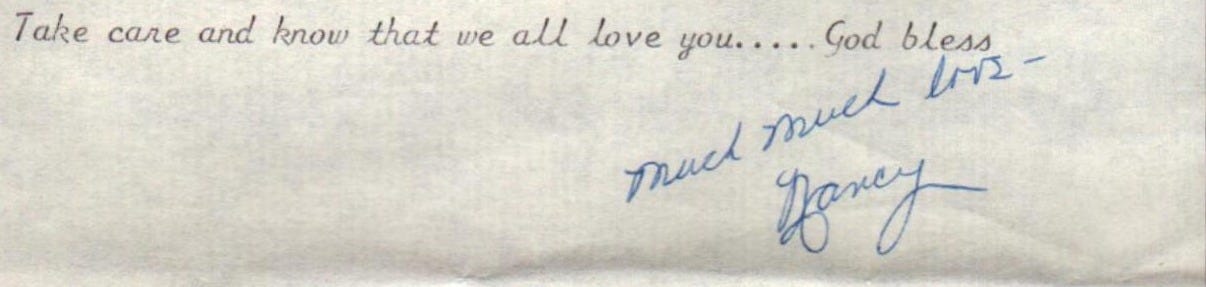 Take care and know that we all love you.....God bless
Much Much love-
Nancy